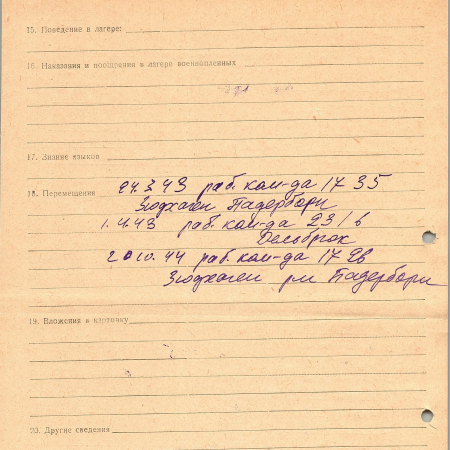 15. Поведение в лагере:
16. Наказания и поощрения в лагере военнопленных
17. Знание языков
18. Перемещения 24.3.43 раб. ком-да 1735
Зюдхаген Падерборн
1.4.43 раб. ком-да 231 в
Дельбрюк
20.10.44 раб. ком-да 1726
Зюдхаген рм Падерборн
19. Вложения в карточку
20. Другие сведения